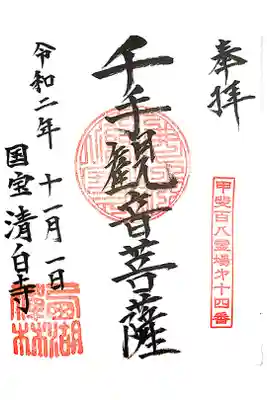 奉拝
甲斐百八霊場第十四番
千手観音菩薩
令和二年 十一月一日
国宝 清白寺